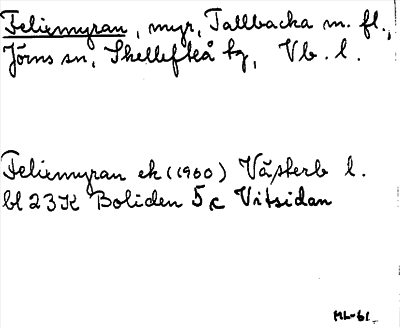 Feliemyran, myr, Tallbacka m. fl.,
Jörns sn, Skellefteå tg, Vb. l.
Feliemyran ek (1960) Västerb l.
bl 23K Boliden 5 c Vitsidan
ML-61